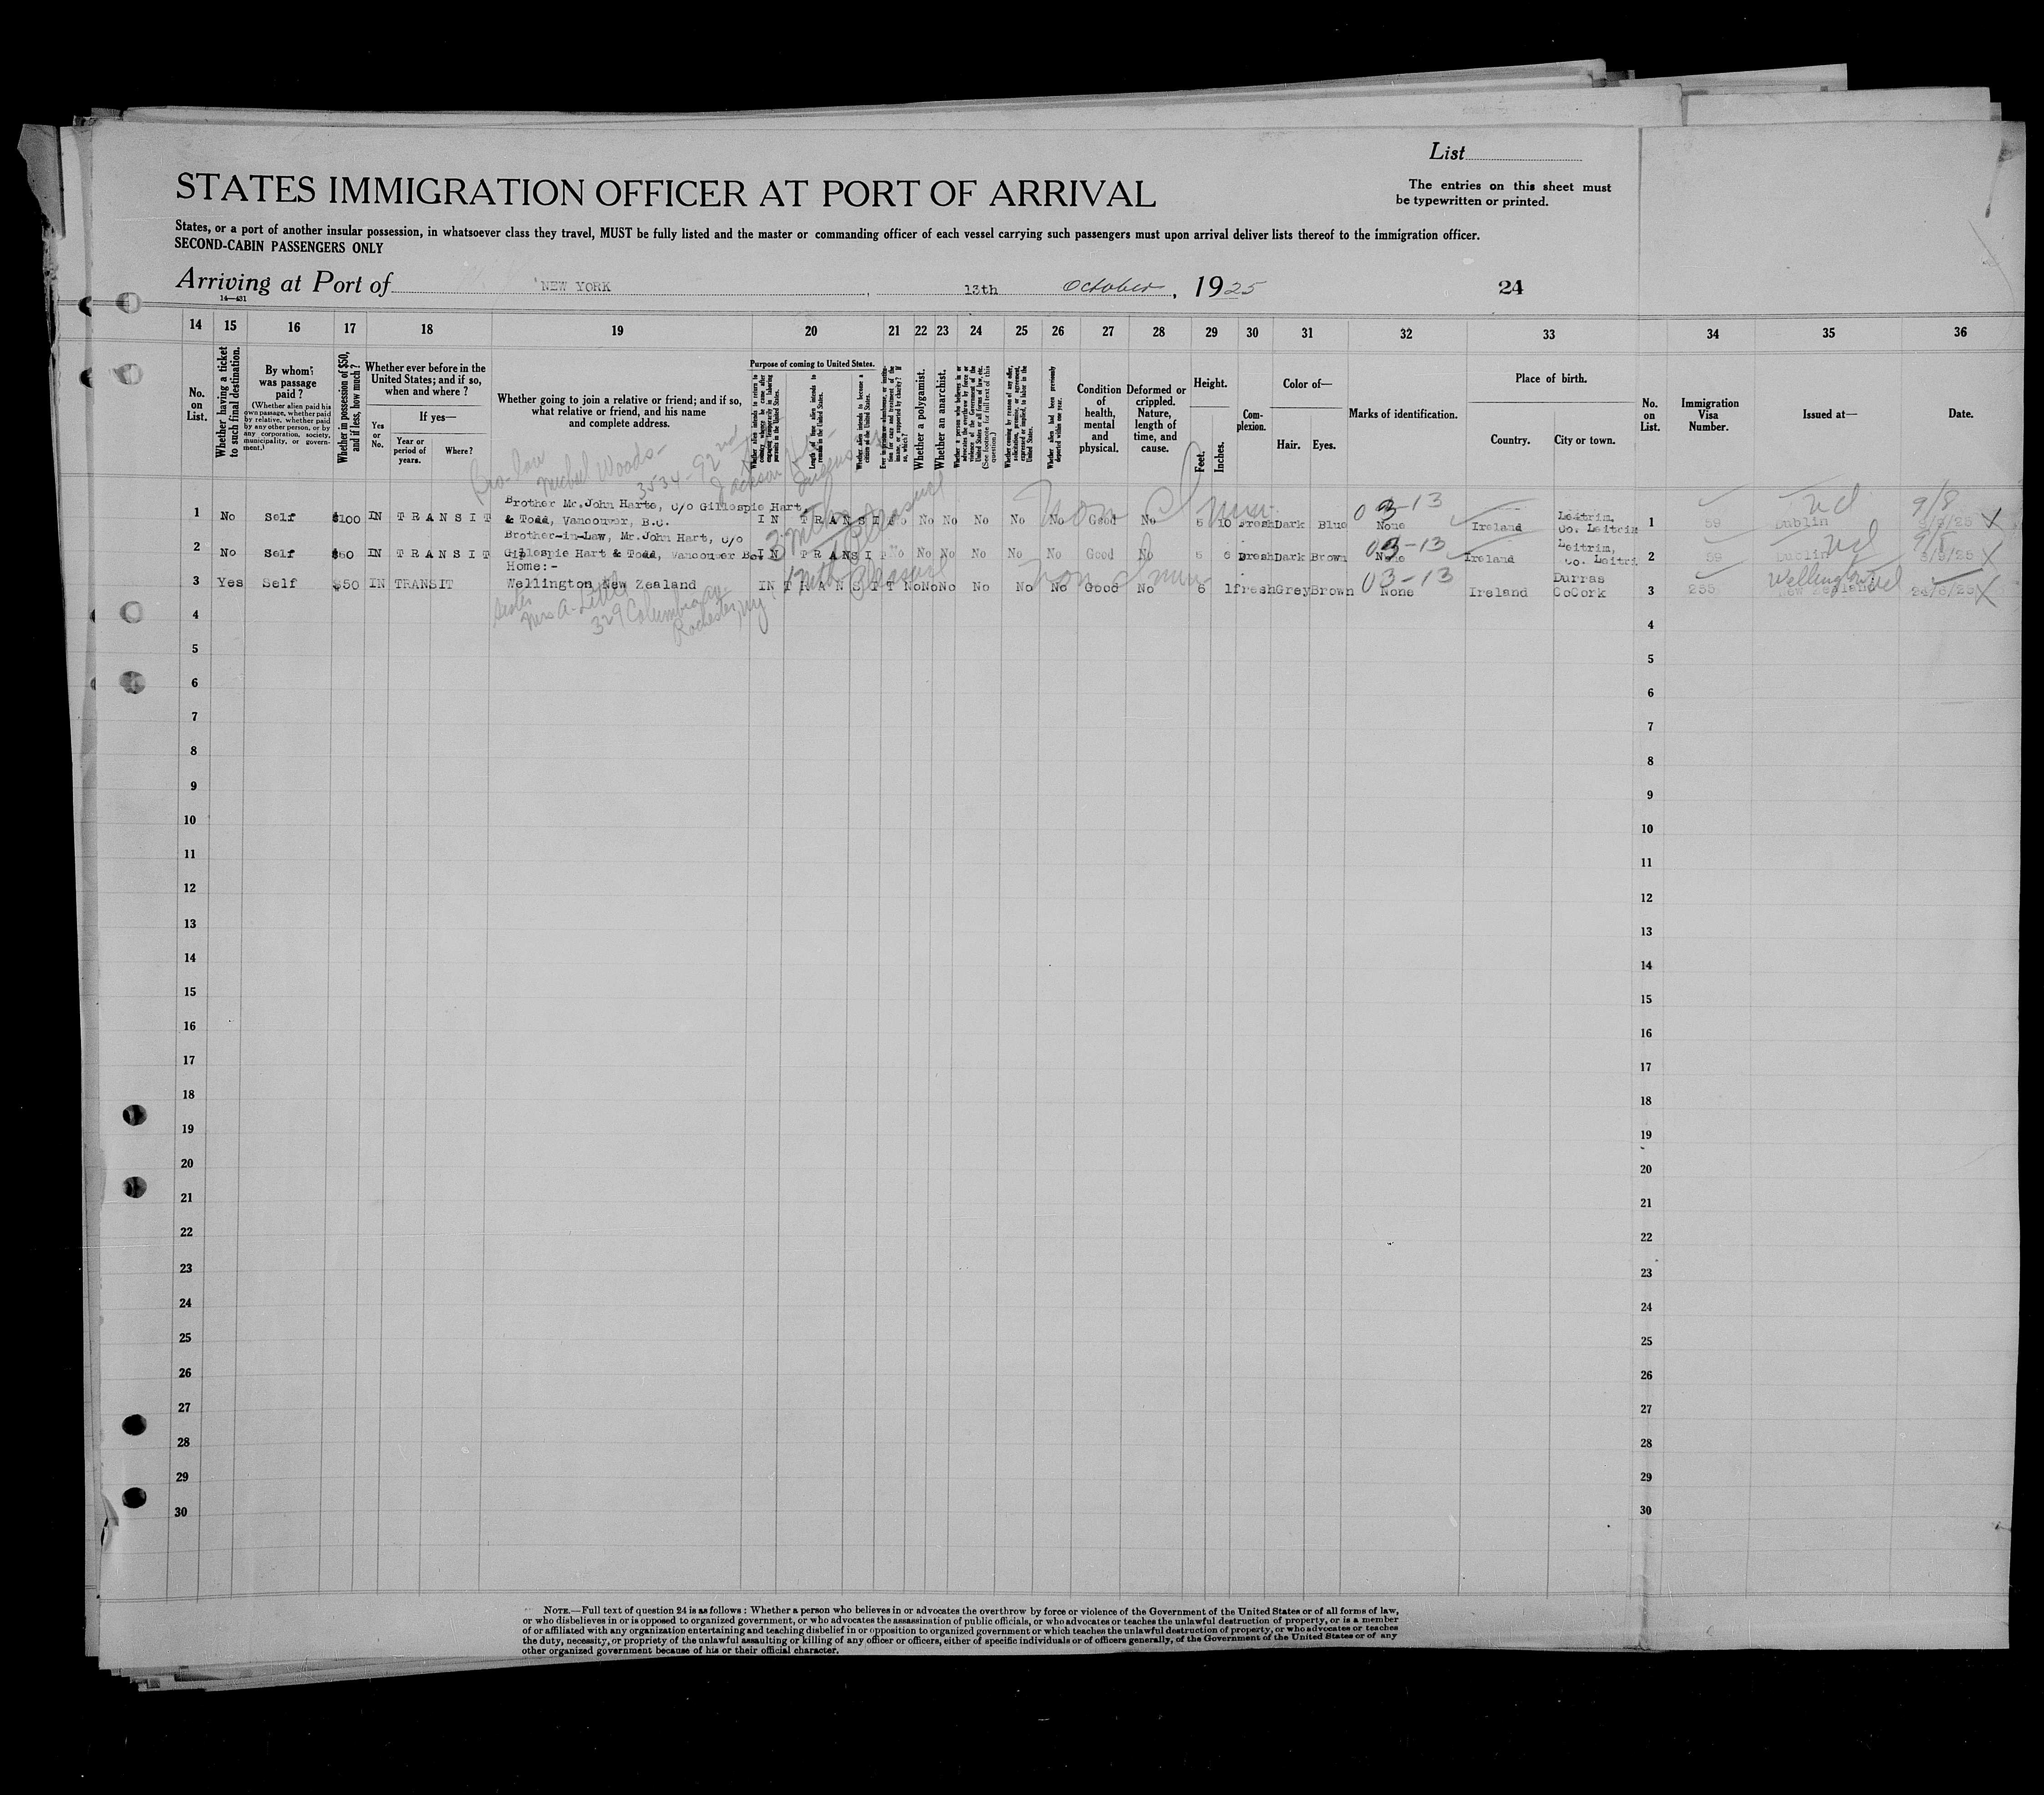 List
STATES IMMIGRATION OFFICER AT PORT OF ARRIVAL
The entries on this sheet must
be typewritten or printed.
States, or a port of another insular possession, in whatsoever class they travel, MUST be fully listed and the master or commanding officer of each vessel carrying such passengers must upon arrival deliver lists thereof to the immigration officer.
SECOND-CABIN PASSENGERS ONLY
Arriving at Port of NEW YORK, 13th October, 1925 24
14—431
14 15 16 17 18 19 20 21 22 23 24 25 26 27 28 29 30 31 32 33 34 35 36
No. on List.
Whether having a ticket to such final destination.
By whom was passage paid?
(Whether alien paid his own passage, whether paid by relative, whether paid by any other person, or by any corporation, society, municipality, or government.)
Whether in possession of $50, and if less, how much?
Whether ever before in the United States; and if so, when and where?
Yes or No.
If yes—
Year or period of years.
Where?
Whether going to join a relative or friend; and if so, what relative or friend, and his name and complete address.
Purpose of coming to United States.
Whether alien intends to return to country whence he came after engaging temporarily in laboring pursuits in the United States.
Length of time alien intends to remain in the United States.
Whether alien intends to become a citizen of the United States.
Whether a polygamist.
Whether an anarchist.
Whether coming by reason of any offer, solicitation, promise, or agreement, expressed or implied, to labor in the United States.
Whether alien had been previously deported within one year.
Condition of health, mental and physical.
Deformed or crippled. Nature, length of time, and cause.
Height.
Feet. Inches.
Complexion.
Color of—
Hair. Eyes.
Marks of identification.
Place of birth.
Country. City or town.
No. on List.
Immigration Visa Number.
Issued at—
Date.
Bro-law
Michael Woods-
3534-92nd
Jackson
Queens
Brother Mr.John Harte, C/o Gillespie Hart,
1 No Self $100 IN TRANSIT & Todd, Vancouver, B.C. IN TRANSIT No No No No No No Good No 5 10 Fresh Dark Blue None Ireland Leitrim, Co. Leitrim 1 59 Dublin 25
03-13
9/8
3 mths Pleasure
Non Immi
Brother-in-Law, Mr.John Hart, C/o
2 No Self $50 IN TRANSIT Gillespie Hart & Todd, Vancouver Bc. IN TRANSIT No No No No No No Good No 5 6 Fresh Dark Brown None Ireland Leitrim, Co. Leitri 2 59 Dublin 25
03-13
Home:-
3 Yes Self $50 IN TRANSIT Wellington New Zealand IN TRANSIT No No No No No No Good No 5 1 fresh Grey Brown None Ireland Durras CoCork 3 255 Wellington New Zealand 25
03-13
1 mth Pleasure
Non Immi
Sister
Mrs A. Little
329 Columbia av
Rochester, NY
4 4
5 5
6 6
7 7
8 8
9 9
10 10
11 11
12 12
13 13
14 14
15 15
16 16
17 17
18 18
19 19
20 20
21 21
22 22
23 23
24 24
25 25
26 26
27 27
28 28
29 29
30 30
NOTE.—Full text of question 24 is as follows: Whether a person who believes in or advocates the overthrow by force or violence of the Government of the United States or of all forms of law,
or who disbelieves in or is opposed to organized government, or who advocates the assassination of public officials, or who advocates or teaches the unlawful destruction of property, or is a member
of or affiliated with any organization entertaining and teaching disbelief in or opposition to organized government or which teaches the unlawful destruction of property, or who advocates or teaches
the duty, necessity, or propriety of the unlawful assaulting or killing of any officer or officers, either of specific individuals or of officers generally, of the Government of the United States or of any
other organized government because of his or their official character.